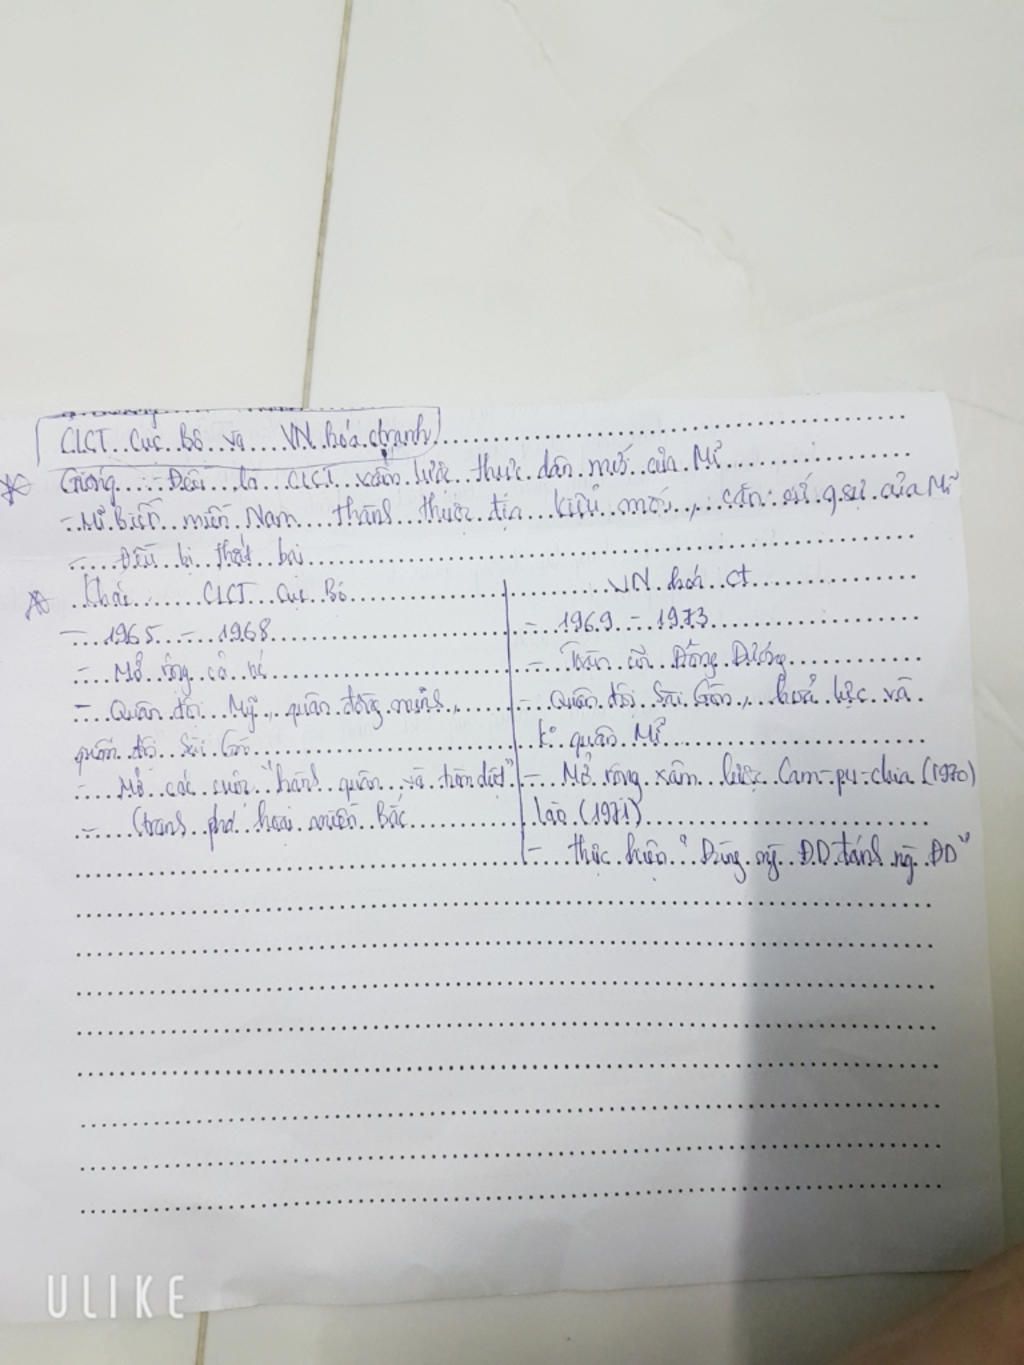 CLCT Cục Bộ và VN hóa ctranh
Giống Đều là CLCT xâm lược thực dân mới của Mĩ
- Mĩ Biến miền Nam thành thuộc địa kiểu mới, căn cứ qsự của Mĩ
Đều bị thất bại
Khác CLCT Cục Bộ
- 1965 - 1968
- Mở rộng cả nc
- Quân đội Mỹ, quân đồng minh,
quân đội Sài Gòn
- Mở các cuộc "hành quân và bình định"
- Ctranh phá hoại miền Bắc
VN hoá CT
- 1969 - 1973
- Toàn cõi Đông Dương
- Quân đội Sài Gòn, hoả lực và
k° quân Mĩ
- Mở rộng xâm lược Cam-pu-chia (1970)
Lào (1971)
- thực hiện "Dùng ng ĐD đánh ng ĐD"
ULIKE